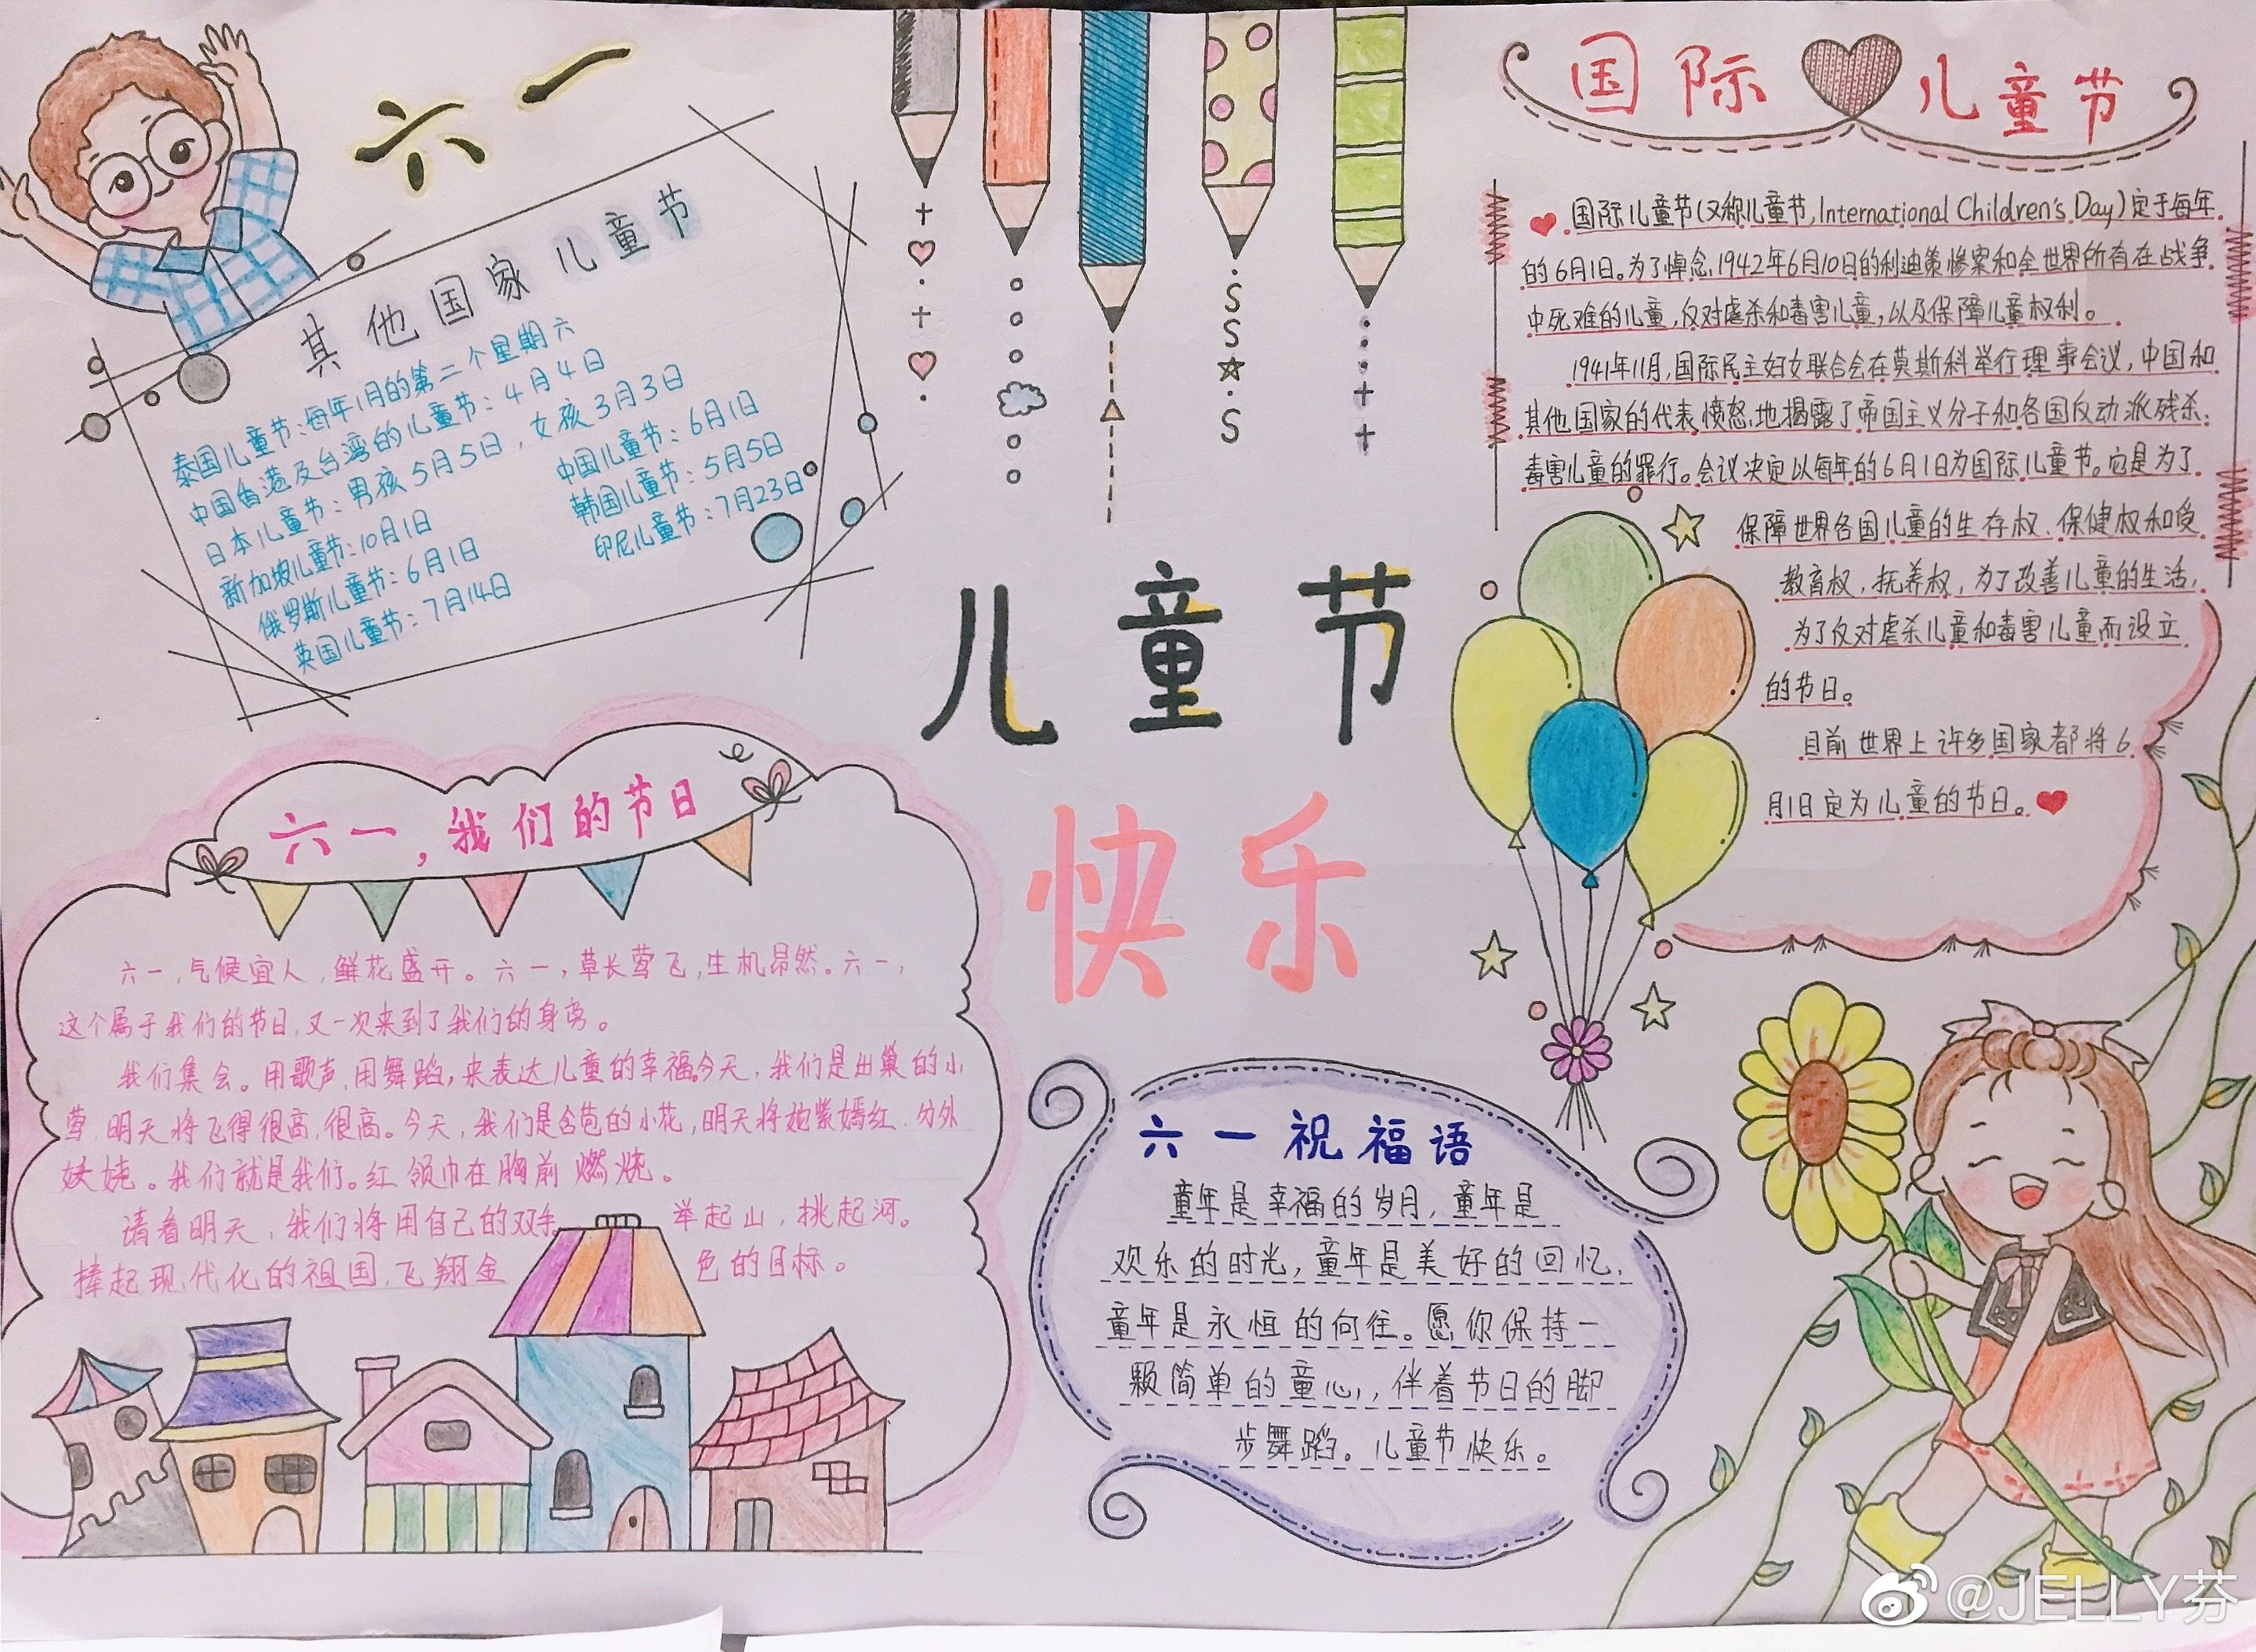 六一
其他国家儿童节
泰国儿童节:每年1月的第二个星期六
中国香港及台湾的儿童节:4月4日
日本儿童节:男孩5月5日,女孩3月3日
新加坡儿童节:10月1日
中国儿童节:6月1日
俄罗斯儿童节:6月1日
韩国儿童节:5月5日
英国儿童节:7月14日
印尼儿童节:7月23日
儿童节
快乐
国际儿童节
国际儿童节(又称儿童节,International Children's Day)定于每年
的6月1日。为了悼念,1942年6月10日的利迪策惨案和全世界所有在战争
中死难的儿童,反对虐杀和毒害儿童,以及保障儿童权利。
1941年11月,国际民主妇女联合会在莫斯科举行理事会议,中国和
其他国家的代表愤怒地揭露了帝国主义分子和各国反动派残杀、
毒害儿童的罪行。会议决定以每年的6月1日为国际儿童节。它是为了
保障世界各国儿童的生存权、保健权和受
教育权,抚养权,为了改善儿童的生活,
为了反对虐杀儿童和毒害儿童而设立
的节日。
目前世界上许多国家都将6
月1日定为儿童的节日。
六一,我们的节日
六一,气候宜人,鲜花盛开。六一,草长莺飞,生机昂然。六一,
这个属于我们的节日,又一次来到了我们的身旁。
我们集会。用歌声,用舞蹈,来表达儿童的幸福今天,我们是出巢的小
莺,明天将飞得很高,很高。今天,我们是含苞的小花,明天将她紫嫣红,分外
妖娆。我们就是我们。红领巾在胸前燃烧。
请看明天,我们将用自己的双手 举起山,挑起河。
捧起现代化的祖国,飞翔金 色的目标。
六一祝福语
童年是幸福的岁月,童年是
欢乐的时光,童年是美好的回忆,
童年是永恒的向往。愿你保持一
颗简单的童心,伴着节日的脚
步舞蹈。儿童节快乐。
@JELLY芬